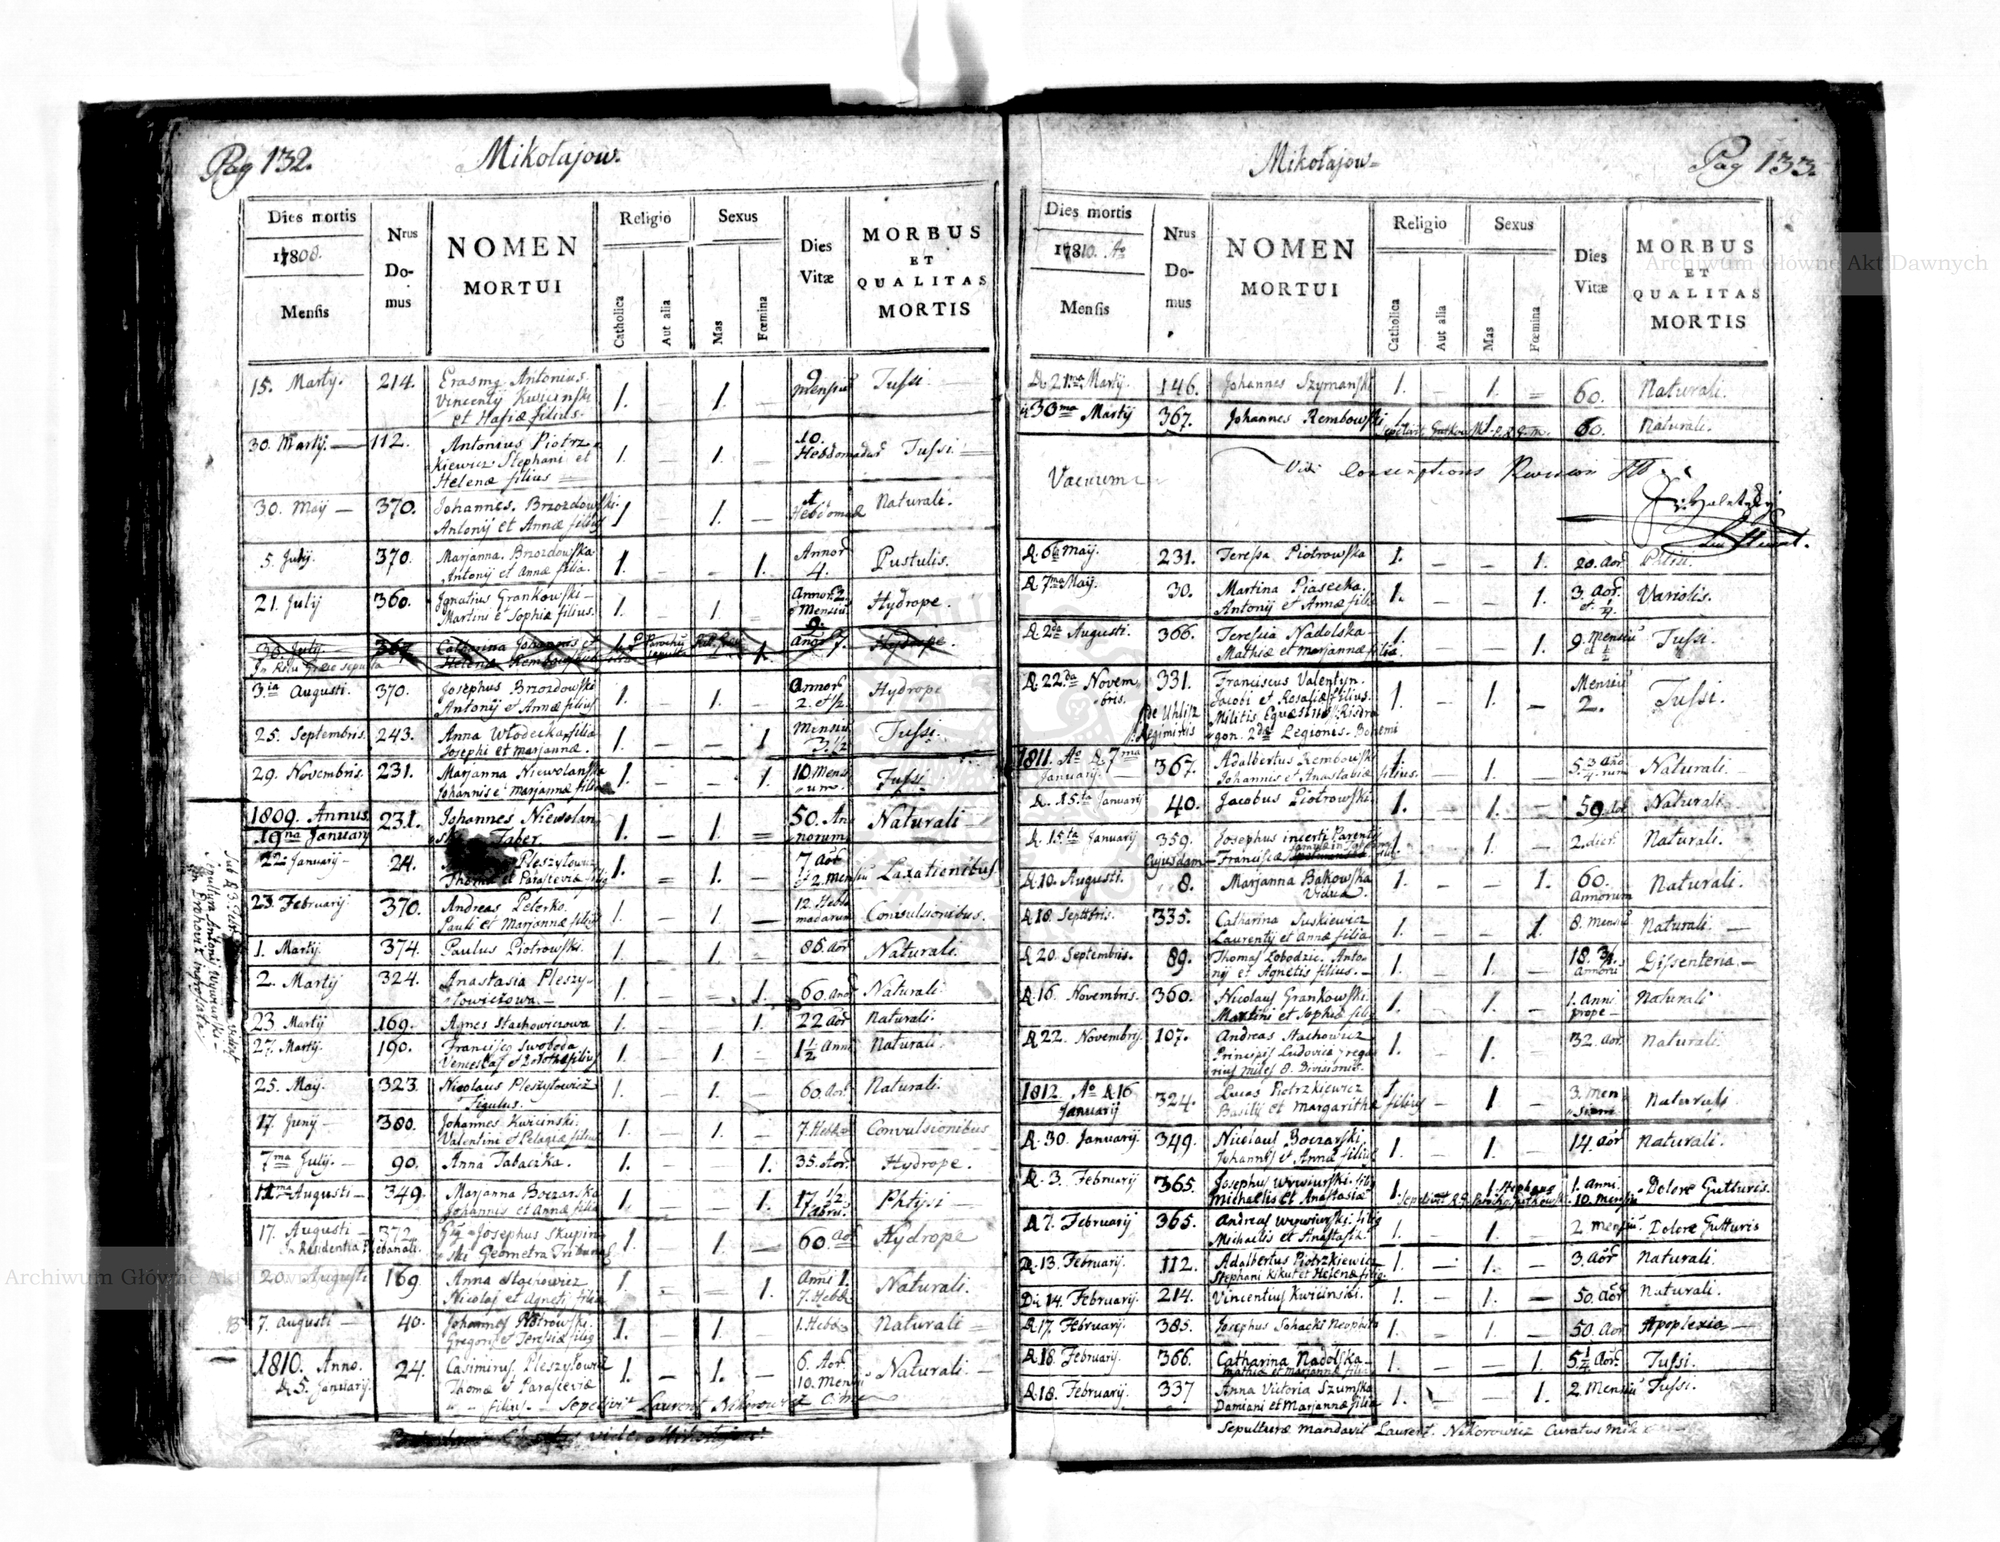 Pag 132.
Mikołajow.
Dies mortis
1808.
Mensis
Nrus
Do-
mus
NOMEN
MORTUI
Religio
Catholica
Aut alia
Sexus
Mas
Fœmina
Dies
Vitæ
MORBUS
ET
QUALITAS
MORTIS
15. Martij. 214. Erasmg Antonius 1. — 1. — 9 mensiu Tussi
Vincentij Kwicinski
et Hafiæ filius.
30. Martij — 112. Antonius Piotrz- 1. — 1. — 10. Hebdomadar Tussi.
kiewicz Stephani et
Helenæ filius
30. Maij — 370. Johannes. Brzozdowski 1 — 1. — 1 Hebdomadæ Naturali.
Antonij et Annæ filius
5. Julij. 370. Marjanna. Brzozdowska 1. — — 1. Annor 4. Pustulis.
Antonij et Annæ filia.
21. Julij 360. Ignatius Grankowski 1. — 1. — Annor. 2. Mensiu Hydrope.
Martini e Sophiæ filius.
30. July. 367 Catharina Johannis et 1. 1. Anor 7. Hydrope.
Helenæ Rembowska filia
3.ia Augusti. 370. Josephus Brzozdowski 1. — 1. — Annor 2. et 1/2 Hydrope
Antonij et Annæ filius
25. Septembris. 243. Anna Włodecka filia 1. — — 1 Mensiu 3 1/2 Tussi.
Josephi et Marjannæ.
29. Novembris. 231. Marjanna Niewolanska 1. — — 1. 10. Mensi um. Tussi
Johannis e Marjannæ filia
1809. Annus. 231. Johannes Niewolan 1. — 1. = 50. An norum Naturali
19na January Faber.
22. January — 24. Pleszytowicz 1. = 1. — 7. Aor 2. mensiu Laxationibus
Thomæ et Parasceviæ filig
23. Februarij 370. Andreas Peterko. 1. — 1. — 12. Hebdo madarum Convulsionibus.
Pauli et Marjannæ filius
1. Martij. 374. Paulus Piotrowski. 1. — 1. — 86. aor Naturali.
2. Martij 324. Anastasia Pleszy- 1. — — 1. 60. Anor Naturali
towiczowa. —
23 Martij 169. Agnes Stachowiczowa 1. — — 1. 22 Aor Naturali.
27. Martij. 190. Francisco Swoboda 1. — 1. — 1 1/2 Anni Naturali.
Venceslaj et Dorotheæ filius
25. May. 323. Nicolaus Pleszytowicz 1. — 1. — 60. Aor. Naturali.
Figulus.
17. Junij — 380. Johannes Kwicinski. 1. — 1. — 7. Hebd. Convulsionibus
Valentini et Pelagiæ filius
7ma Julij. — 90. Anna Tabaczka. 1. — — 1. 35. Aor. Hydrope.
11ma Augusti — 349. Marjanna Boczarska 1. — — 1. 17 1/2. Phtysi
Johannis et Annæ filia
17. Augusti — 372. Josephus Skupin 1. — 1. — 60 Hydrope
In Residentia Plebanali. ski Geometra
20. Augusti 169 Anna Stachowicz 1. — — 1. Anni 1. 7. Hebd. Naturali.
Nicolaj et Agnetj filia
7. Augusti — 40. Johannes Piotrowski. 1. — 1. — 1. Hebd. Naturali
Gregorij et Teressiæ filig
1810. Anno. 24. Casimirus Pleszytowicz 1. — 1. — 6. Aor. Naturali
5. January. Thomæ et Parasceviæ 10. Mensiu
filius — Sepelivit Laurent Nikorowicz
vide Mikołajow.
Pag 133.
Mikołajow
Dies mortis
1810. Ao
Mensis
Nrus
Do-
mus
NOMEN
MORTUI
Religio
Catholica
Aut alia
Sexus
Mas
Fœmina
Dies
Vitæ
MORBUS
ET
QUALITAS
MORTIS
D. 21. Martij. 146. Johannes Szymanski 1. — 1. = 60. Naturali.
30ma Martij 367. Johannes Rembowski 60. Naturali.
Vacuum
Vidi Conscriptions Revision
D. 6ta Maij. 231. Teressa Piotrowska 1. — — 1. 20. Aor. Phtisi.
D. 7ma Maij. 30. Martina Piasecka 1. — — 1. 3. Aor. et Variolis.
Antonij et Annæ filia
D. 2da Augusti. 366. Teressia Nadolska 1. — — 1. 9. Mensiu Tussi.
Mathiæ et Marjannæ filia.
D. 22da Novem- 331. Franciscus Valentyn. 1. — 1. — Mensiu 2. Tussi.
bris. Jacobi et Rosaliæ filius.
de Uhlisz Militis
Regimintis gon. 2dæ Legionis- Bohemi
1811. Ao D. 7ma 367. Adalbertus Rembowski 1. — 1. — 5. 3/4. Naturali
January. — Johannis et Anastasiæ filius.
D. 15.ta January 40. Jacobus Piotrowski. 1. — 1. — 59. aor Naturali
D. 15ta January 359. Josephus incerti Parentis — 1. — 2. dier. Naturali.
Cujusdam Franciscæ
D. 10. Augusti. 8. Marjanna Bakowska 1. — — 1. 60. Annorum Naturali.
Vidua.
D. 18. Septbris. 335. Catharina Suskiewicz 1. — — 1. 8. Mensiu Naturali. —
Laurentij et Annæ filia
D. 20. Septembris. 89. Thomas Łobodzic. Anto- 1. — 1. — 18. 3/4. Annoru Dissenteria. —
nij et Agnetis filius. —
D. 16. Novembris. 360. Nicolaus Grankowski. 1. — 1. — 1. Anni prope — Naturali
Martini et Sophiæ filig
D. 22. Novembrij. 107. Andreas Stachowicz 1. — 1. — 32. aor. Naturali.
Principis Ludovici
miles 8. Divisionis.
1812. Ao D. 16 324. Lucas Piotrzkiewicz — 1 — 3. Men Naturali
January Basilij et Margarithæ filius
D. 30. January. 349. Nicolaus Boczarski. 1. — 1. — 14. aor Naturali.
Johannis et Annæ filius
D. 3. February 365. Josephus Wywiurski. filg 1. 1. 1. Anni. Dolore Gutturis.
Michaelis et Anastasiæ 10. Mensiu
D. 7. February 365. Andreas Wywiurski. filig 1. — 1. — 2. Mensiu Dolore Gutturis
Michaelis et Anastasiæ.
D. 13. February 112. Adalbertus Piotrzkiewicz 1. — 1. — 3. aor Naturali
Stephani et Helenæ filig.
Die 14. February. 214. Vincentius Kwicinski. 1. — 1. — 50. aor Naturali.
D. 17. February. 385. Josephus Sohacki 1. — 1. — 50. Aor Apoplexia
D. 18. February. 366. Catharina Nadolska 1. — — 1. 5 1/2 Aor. Tussi.
Mathiæ et Marjannæ filia
D. 18. February. 337 Anna Victoria Szumska 1. — — 1. 2 Mensiu Tussi.
Damiani et Marjannæ filia
Sepulturæ mandavit Laurent. Nikorowicz Curatus
Archiwum Główne Akt Dawnych
Archiwum Główne Akt Dawnych